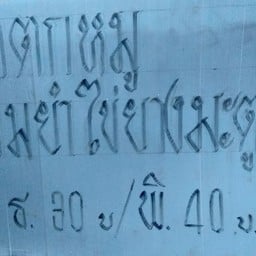 หมู
มยำไข่ยางมะตู
ธ. 30 บ/พิ. 40 บ.